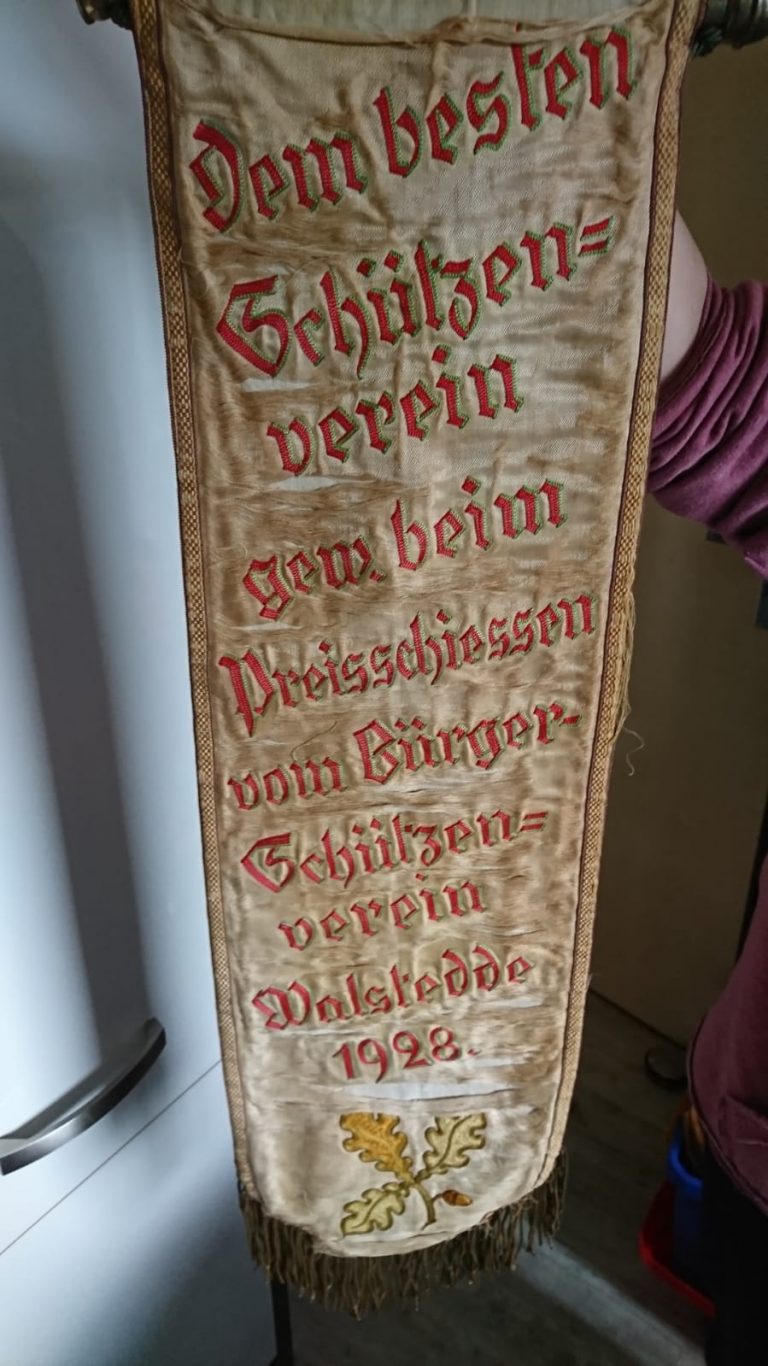 Dem besten
Schützen=
verein
gew. beim
Preisschiessen
vom Bürger-
Schützen=
verein
Walstedde
1928.